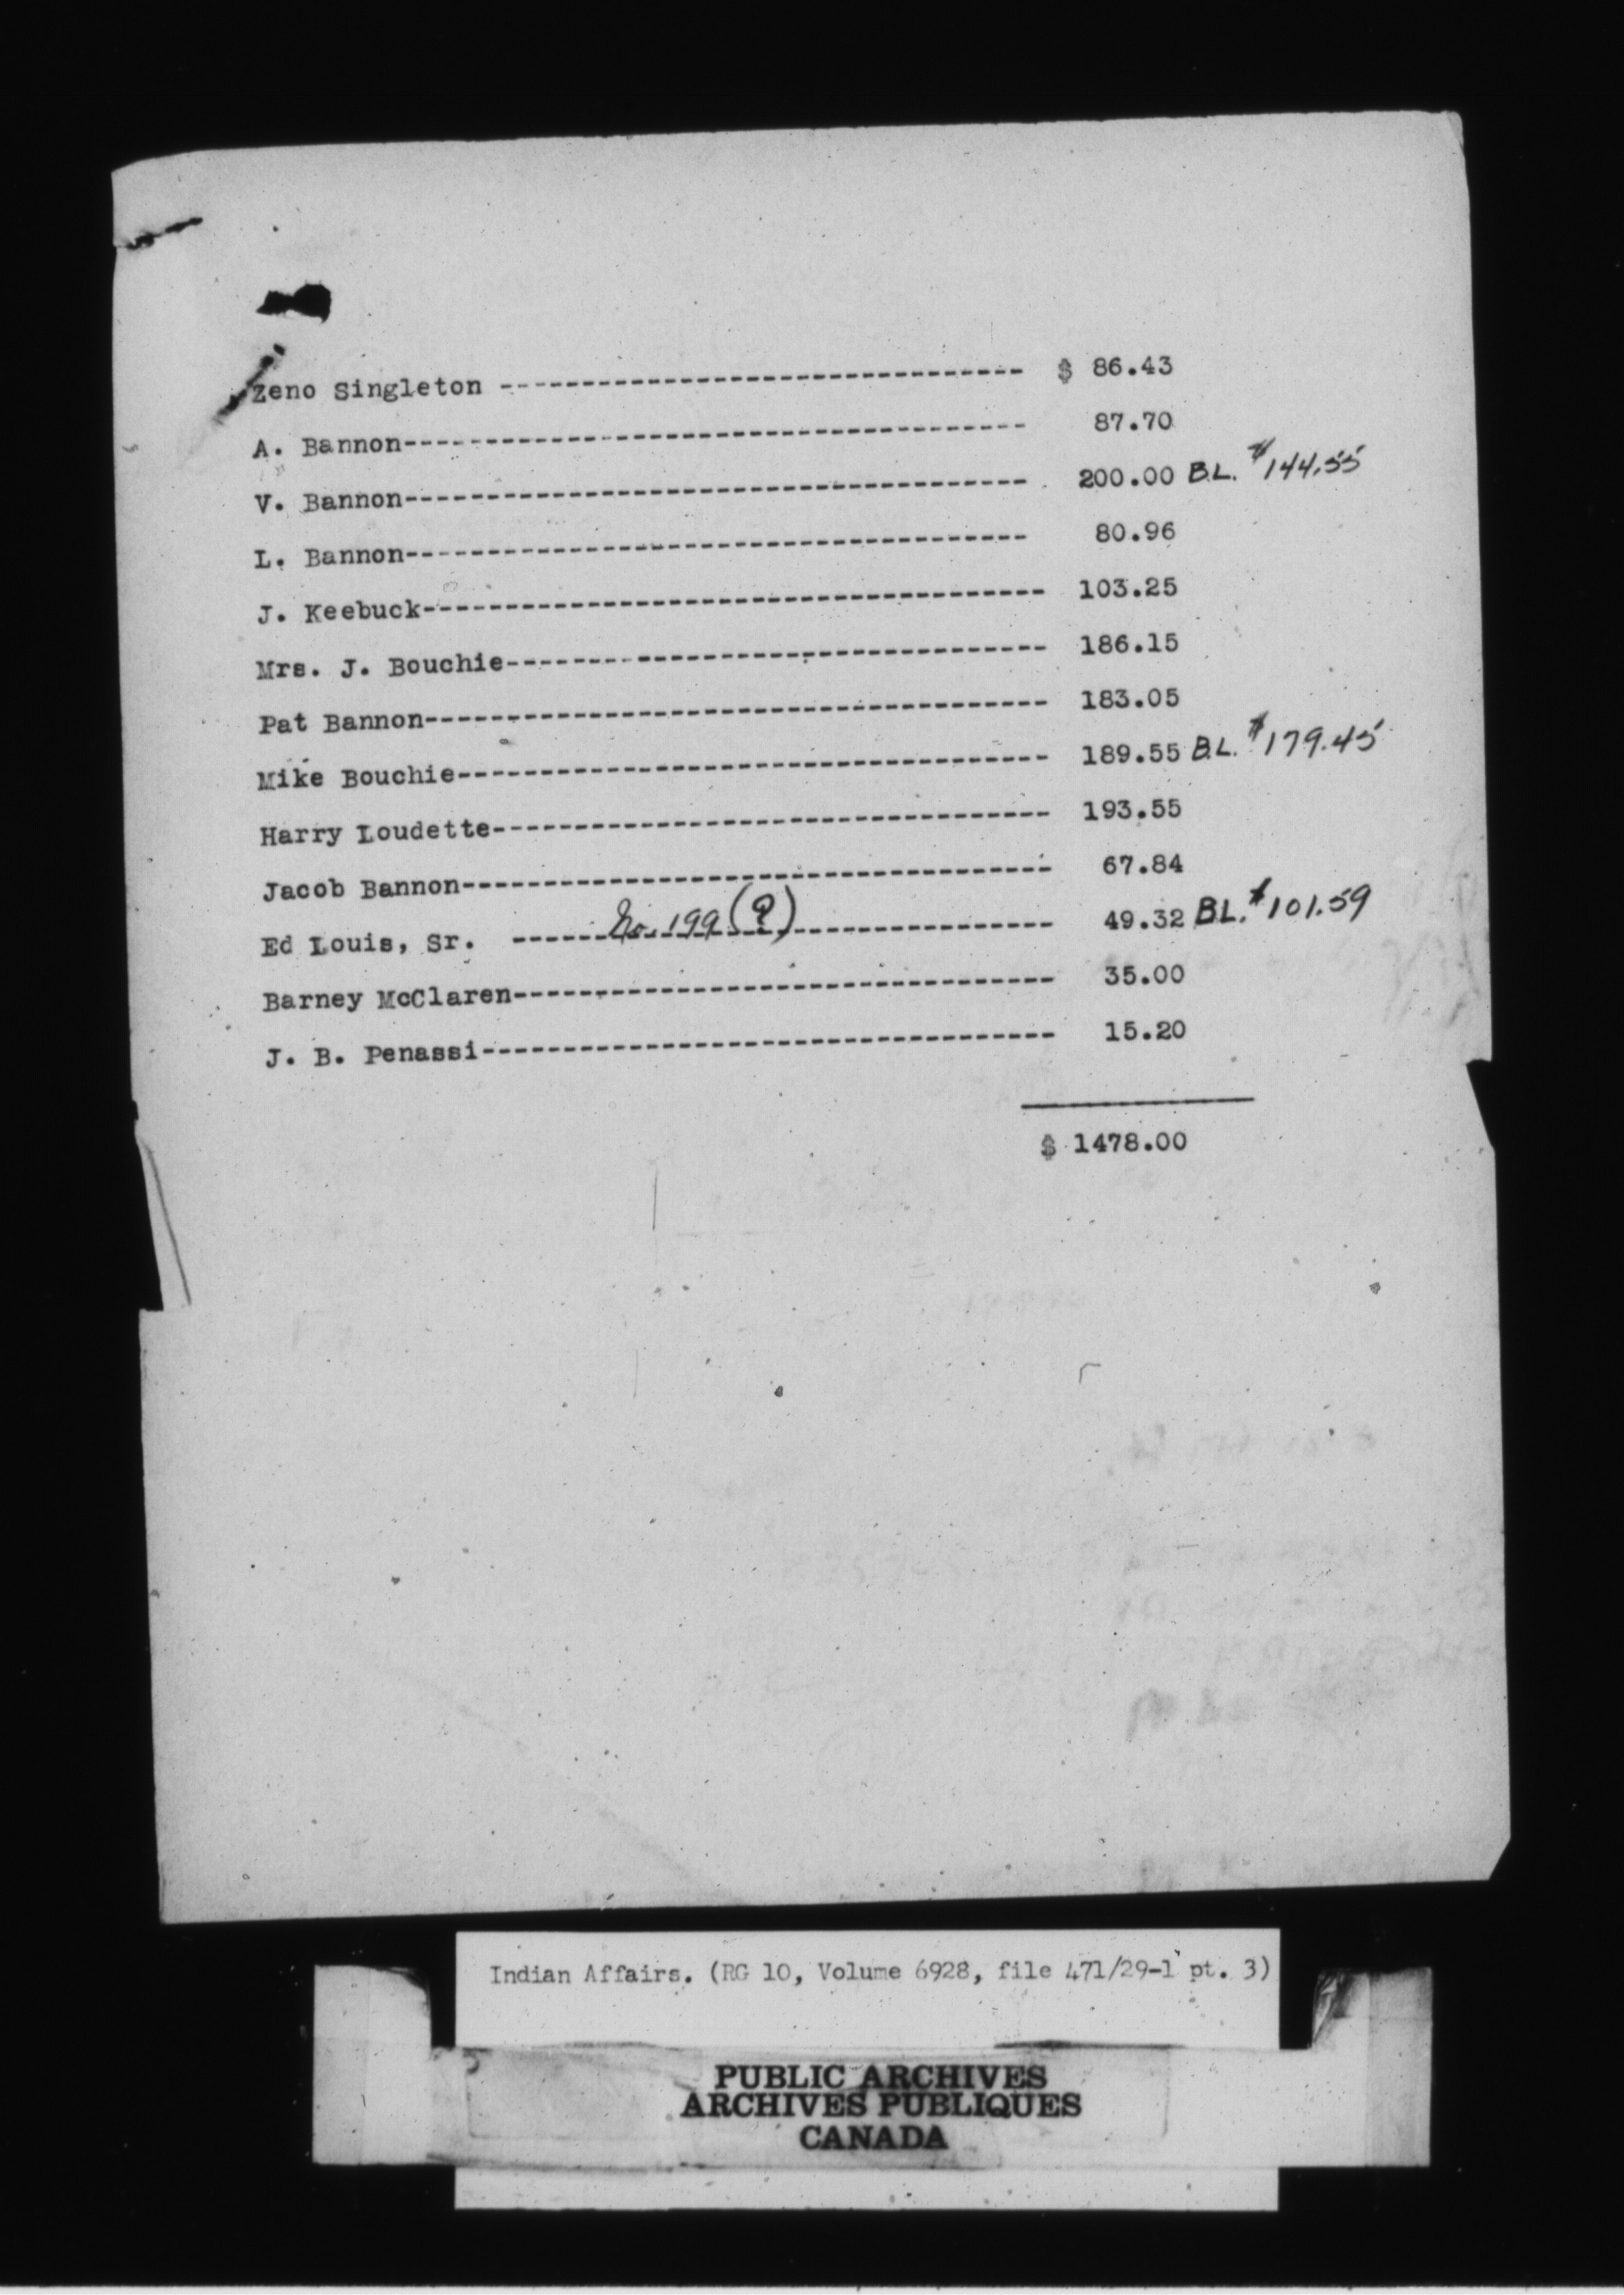 Zeno Singleton -------------------------------- $ 86.43
A. Bannon-------------------------------------- 87.70
V. Bannon-------------------------------------- 200.00 B.L. $144.55
L. Bannon-------------------------------------- 80.96
J. Keebuck-------------------------------------- 103.25
Mrs. J. Bouchie--------------------------------- 186.15
Pat Bannon-------------------------------------- 183.05
Mike Bouchie------------------------------------ 189.55 B.L. $179.45
Harry Loudette---------------------------------- 193.55
Jacob Bannon------------------------------------ 67.84
Ed Louis, Sr. ------No. 199 (?)---------------- 49.32 BL. $101.59
Barney McClaren--------------------------------- 35.00
J. B. Penassi----------------------------------- 15.20
$ 1478.00
Indian Affairs. (RG 10, Volume 6928, file 471/29-1 pt. 3)
PUBLIC ARCHIVES
ARCHIVES PUBLIQUES
CANADA